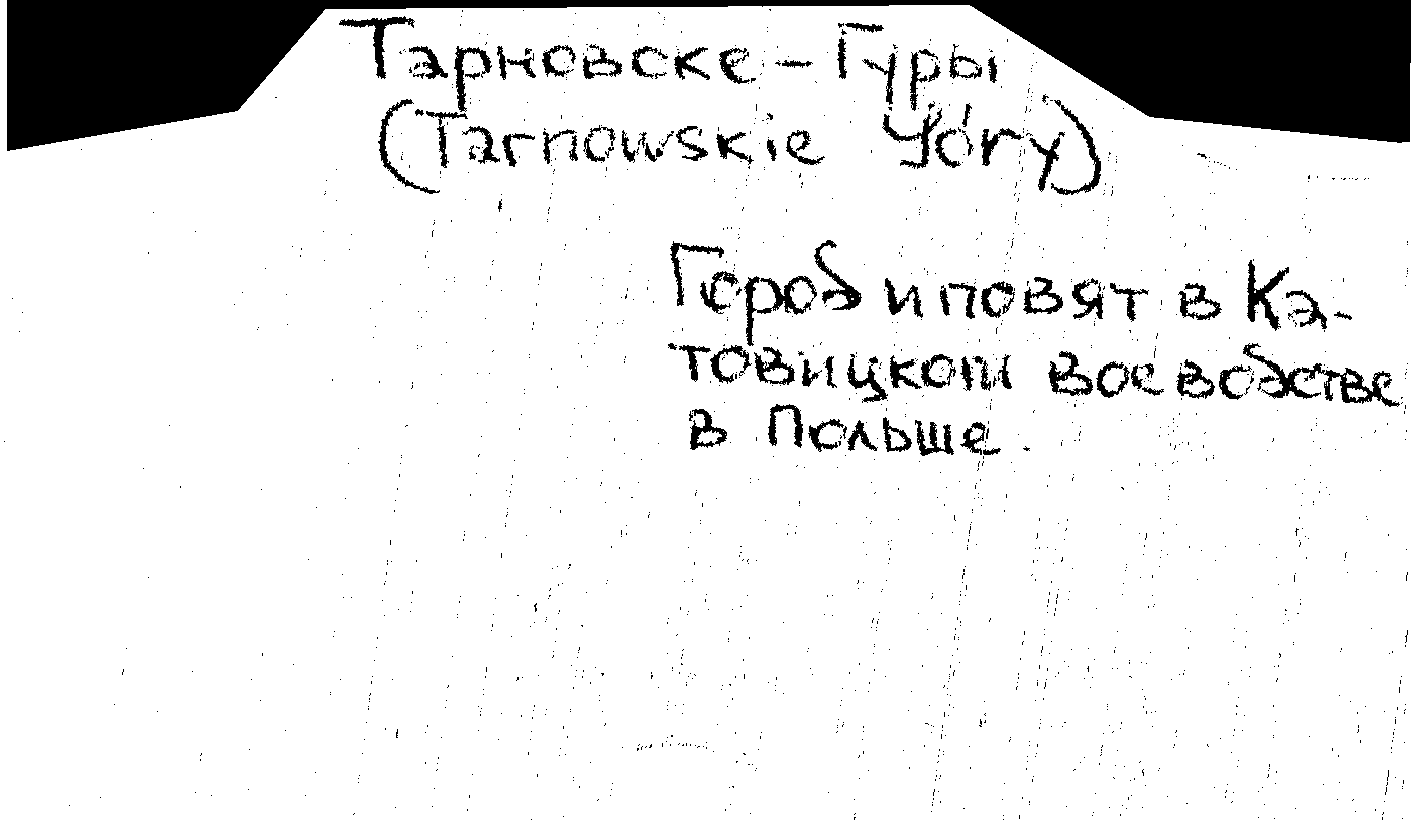 Тарновске-Гуры
(Tarnowskie Góry)
Город и повят в Ка-
товицком воеводстве
в Польше.